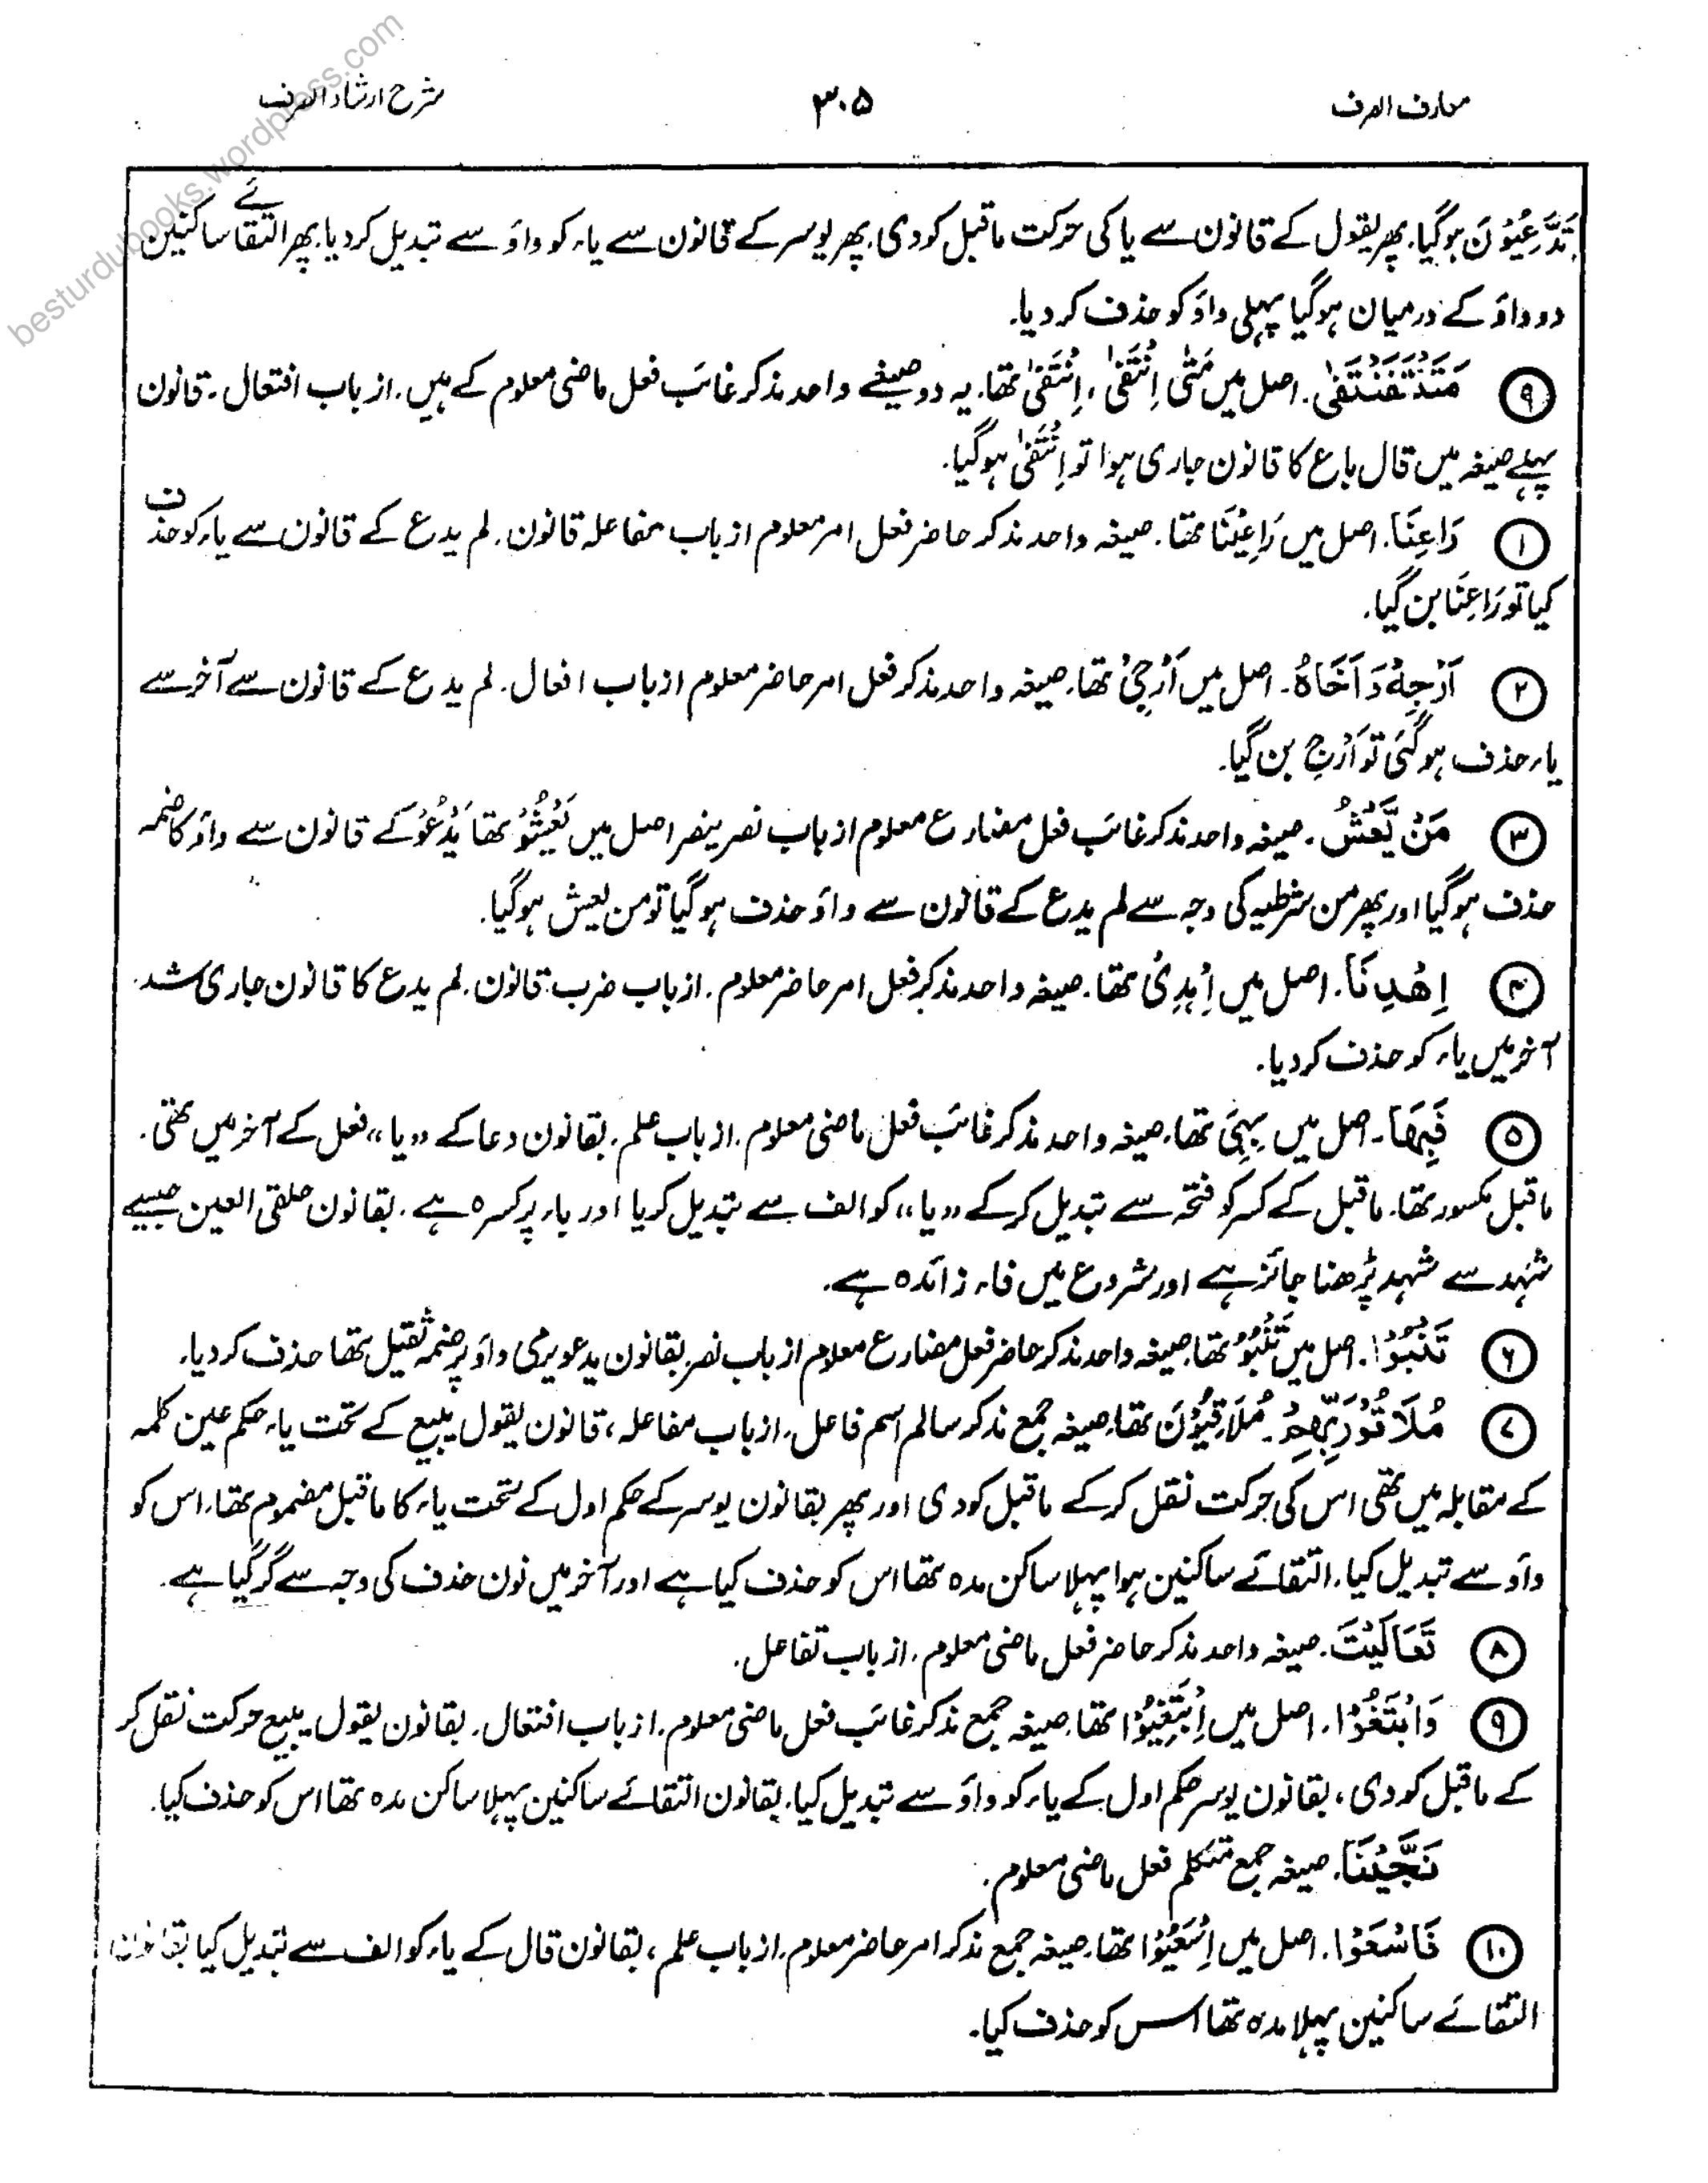 معارف الصرف
۳۰۵
شرح ارشاد الصرف
تَدَّعِيُوْنَ ہوگیا۔ پھر یقول کے قانون سے یا کی حرکت ماقبل کو دی۔ پھر یوسر کے قانون سے یاء کو واؤ سے تبدیل کردیا۔ پھر التقائے ساکنین
دو واؤ کے درمیان ہوگیا پہلی واؤ کو حذف کر دیا۔
۹ مَتَنْتَفَنْتَفٰی۔ اصل میں مَتٰی اِنْتَفٰی، اِنْتَفٰی تھا۔ یہ دو صیغے واحد مذکر غائب فعل ماضی معلوم کے ہیں۔ از باب افتعال۔ قانون
پہلے صیغہ میں قال باع کا قانون جاری ہوا تو اِنْتَفٰی ہوگیا۔
۱ رَاعِنَا۔ اصل میں رَاعِيْنَا تھا۔ صیغہ واحد مذکر حاضر فعل امر معلوم از باب مفاعلہ قانون۔ لم یدع کے قانون سے یاء کو حذف
کیا تو رَاعِنَا بن گیا۔
۲ اَرْجِهْ وَاَخَاهُ۔ اصل میں اَرْجِیْ تھا۔ صیغہ واحد مذکر فعل امر حاضر معلوم از باب افعال۔ لم یدع کے قانون سے آخر سے
یاء حذف ہوگئی تو اَرْجِ بن گیا۔
۳ مَنْ يَّعْشُ۔ صیغہ واحد مذکر غائب فعل مضارع معلوم از باب نصر ینصر اصل میں يَعْشُوُ تھا يَدْعُوُ کے قانون سے واؤ کا ضمہ
حذف ہوگیا اور پھر من شرطیہ کی وجہ سے لم یدع کے قانون سے واؤ حذف ہوگیا تو من یعش ہوگیا۔
۴ اِهْدِنَا۔ اصل میں اِهْدِیْ تھا۔ صیغہ واحد مذکر فعل امر حاضر معلوم۔ از باب ضرب قانون۔ لم یدع کا قانون جاری شد۔
آخر میں یاء کو حذف کر دیا۔
۵ فَبِهَا۔ اصل میں بِهِیَ تھا۔ صیغہ واحد مذکر غائب فعل ماضی معلوم۔ از باب علم۔ بقانون دعا کے "یا" فعل کے آخر میں تھی۔
ماقبل مکسور تھا۔ ماقبل کے کسر کو فتحہ سے تبدیل کرکے "یا" کو الف سے تبدیل کریا اور باء پر کسرہ ہے۔ بقانون حلقی العین جیسے
شَہِد سے شِہِد پڑھنا جائز ہے اور شروع میں فاء زائدہ ہے۔
۶ تَنْبُوْا۔ اصل میں تَنْبُوُ تھا۔ صیغہ واحد مذکر حاضر فعل مضارع معلوم از باب نصر بقانون یدعو یرمی واؤ پر ضمہ ثقیل تھا حذف کر دیا۔
۷ مُلَاقُوْ رَبِّهِمْ۔ مُلَاقِيُوْنَ تھا۔ صیغہ جمع مذکر سالم اسم فاعل۔ از باب مفاعلہ، قانون یقول یبیع کے تحت یاء حکم عین کلمہ
کے مقابلہ میں تھی اس کی حرکت نقل کرکے ماقبل کو دی اور پھر بقانون یوسر کے حکم اول کے تحت یاء کا ماقبل مضموم تھا۔ اس کو
واؤ سے تبدیل کیا۔ التقائے ساکنین ہوا پہلا ساکن مدہ تھا اس کو حذف کیا ہے اور آخر میں نون حذف کی وجہ سے گر گیا ہے۔
۸ تَعَالَيْتَ۔ صیغہ واحد مذکر حاضر فعل ماضی معلوم۔ از باب تفاعل۔
۹ وَابْتَغُوْا۔ اصل میں اِبْتَغِيُوْا تھا۔ صیغہ جمع مذکر غائب فعل ماضی معلوم۔ از باب افتعال۔ بقانون یقول یبیع حرکت نقل کر
کے ماقبل کو دی، بقانون یوسر حکم اول کے یاء کو واؤ سے تبدیل کیا۔ بقانون التقائے ساکنین پہلا ساکن مدہ تھا اس کو حذف کیا۔
نَجَّيْنَا۔ صیغہ جمع متکلم فعل ماضی معلوم۔
۱۰ فَاسْعَوْا۔ اصل میں اِسْعَيُوْا تھا۔ صیغہ جمع مذکر امر حاضر معلوم۔ از باب علم، بقانون قال کے یاء کو الف سے تبدیل کیا بقانون
التقائے ساکنین پہلا مدہ تھا اس کو حذف کیا۔
besturdubooks.wordpress.com